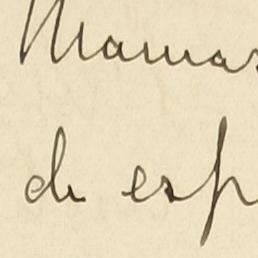 Mamas
de esp